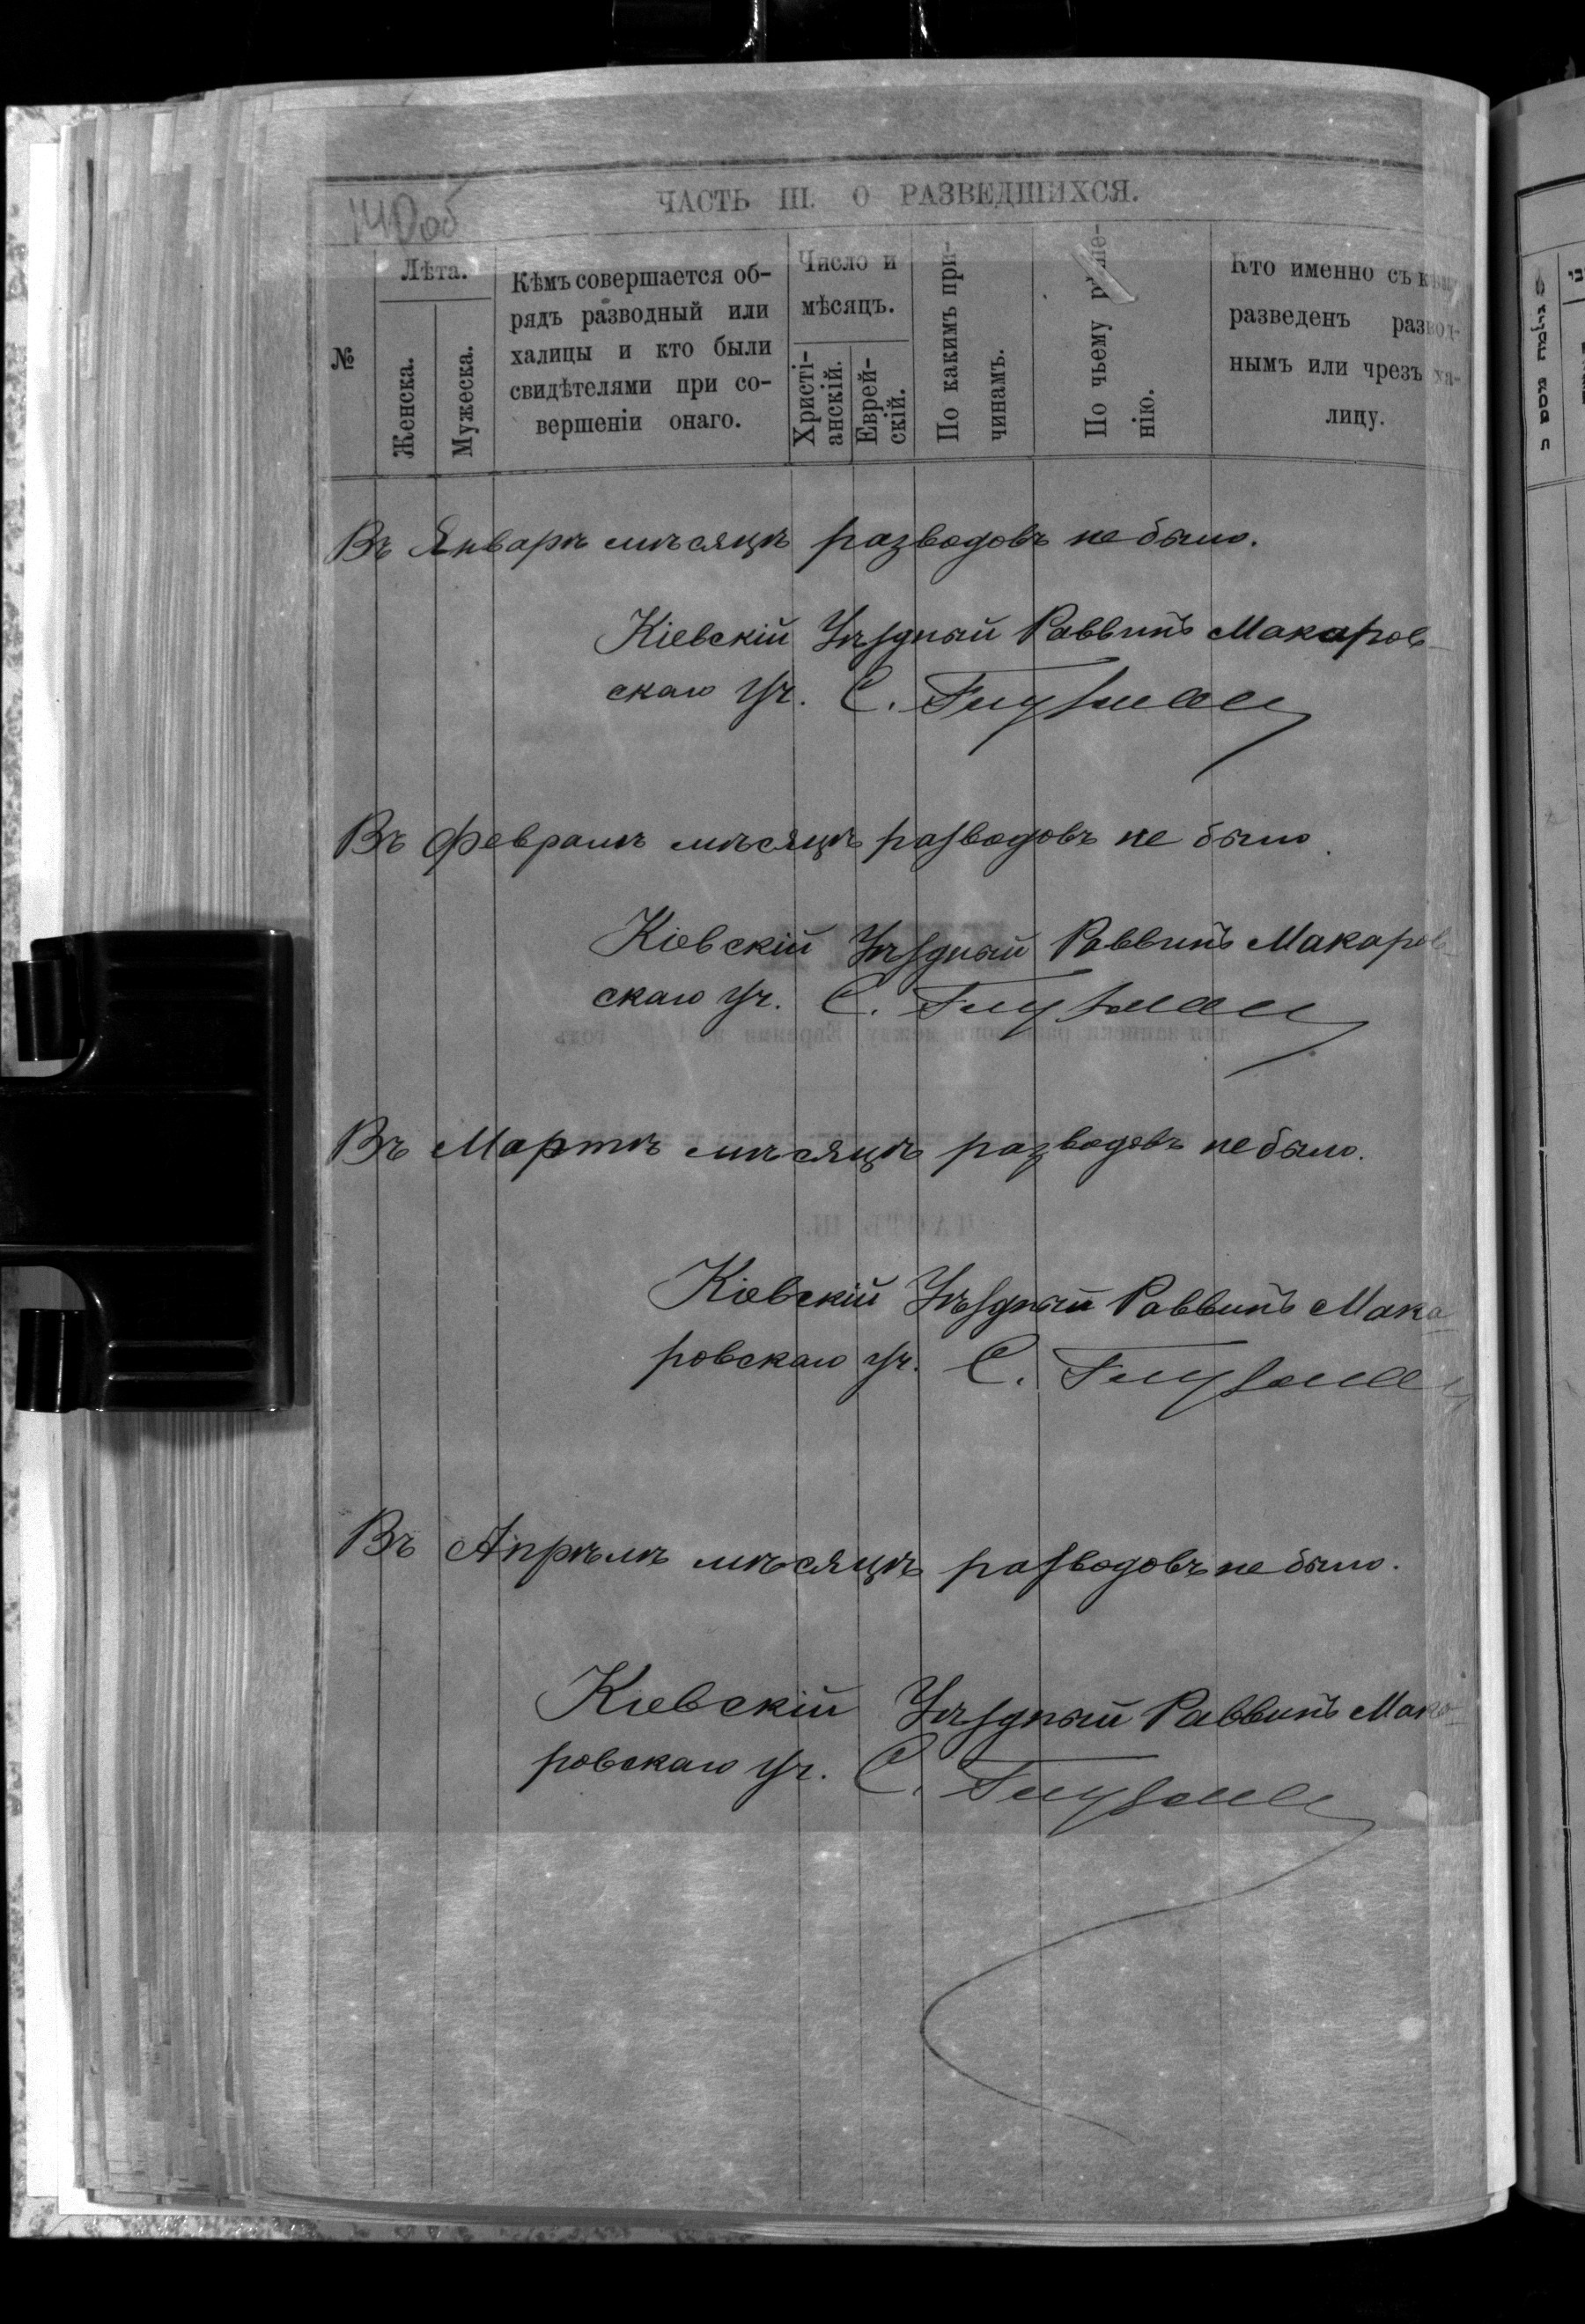 140об
ЧАСТЬ III. О РАЗВЕДШИХСЯ.
№
Лѣта.
Женска.
Мужеска.
Кѣмъ совершается об-
рядъ разводный или
халицы и кто были
свидѣтелями при со-
вершеніи онаго.
Число и
мѣсяцъ.
Христі-
анскій.
Еврей-
скій.
По какимъ при-
чинамъ.
По чьему рѣше-
нію.
Кто именно съ кѣмъ
разведенъ развод-
нымъ или чрезъ ха-
лицу.
Въ Январѣ мѣсяцѣ разводовъ не было.
Кіевскій Уѣздный Раввинъ Макаров-
скаго уч. С. Глузман
Въ Февралѣ мѣсяцѣ разводовъ не было.
Кіевскій Уѣздный Раввинъ Макаров-
скаго уч. С. Глузман
Въ Мартѣ мѣсяцѣ разводовъ не было.
Кіевскій Уѣздный Раввинъ Мака-
ровскаго уч. С. Глузман
Въ Апрѣлѣ мѣсяцѣ разводовъ не было.
Кіевскій Уѣздный Раввинъ Мака-
ровскаго уч. С. Глузман